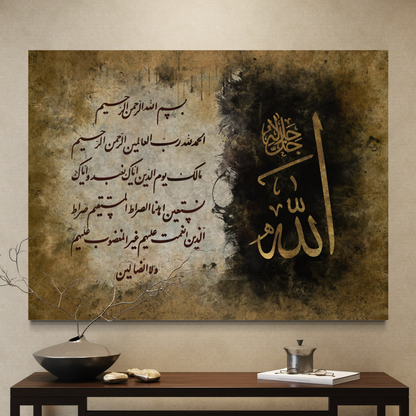 بسم الله الرحمن الرحیم
الحمدلله رب العالمین الرحمن الرحیم
مالک یوم الدین ایاک نعبد وایاک
نستعین اهدنا الصراط المستقیم صراط
الذین انعمت علیهم غیر المغضوب علیهم
ولا الضالین
الله
جل جلاله